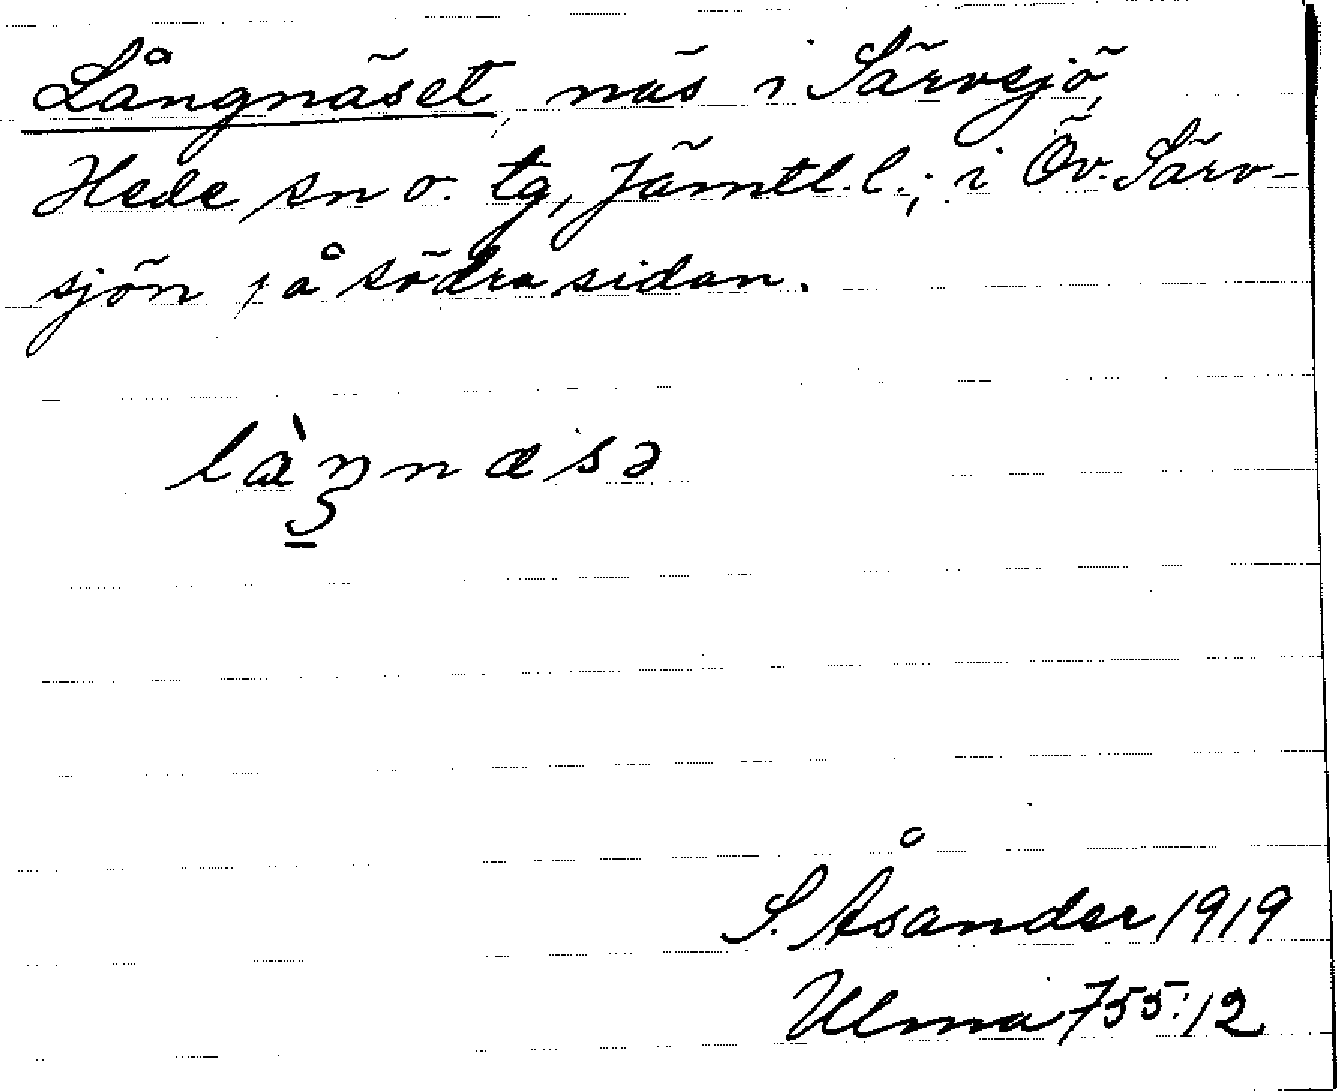 Långnäset, näs i Särvsjö,
Hede sn o. tg, Jämtl. l.; i Öv. Särv-
sjön på södra sidan.
làŋnæsə
S. Åsander 1919
Ulma 755:12